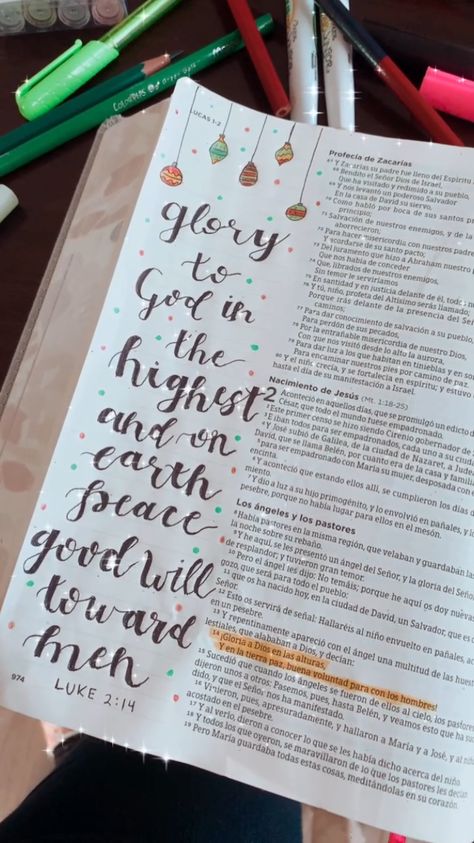 LUCAS 1-2
glory
to
God in
the
highest
and on
earth
peace
good will
toward
men
LUKE 2:14
974
Profecía de Zacarías
su padre fue lleno del Espíritu
Bendito el Señor Dios de Israel,
Que ha visitado y redimido a su pueblo,
Y nos levantó un poderoso Salvador
En la casa de David su siervo,
Como habló por boca de sus santos
principio;
Salvación de nuestros enemigos, y de la
aborrecieron;
Para hacer misericordia con nuestros padres
Y acordarse de su santo pacto;
Del juramento que hizo a Abraham nuestro
Que nos había de conceder
Que, librados de nuestros enemigos,
Sin temor le serviríamos
En santidad y en justicia delante de él,
Y tú, niño, profeta del Altísimo serás llamado;
Porque irás delante de la presencia del
caminos;
Para dar conocimiento de salvación a su pueblo,
Para perdón de sus pecados,
Por la entrañable misericordia de nuestro Dios,
Con que nos visitó desde lo alto la aurora,
Para dar luz a los que habitan en tinieblas y en
Para encaminar nuestros pies por camino de paz.
80 Y el niño crecía, y se fortalecía en espíritu; y estuvo
hasta el día de su manifestación a Israel.
Nacimiento de Jesús (Mt. 1:18-25)
2 Aconteció en aquellos días, que se promulgó un edicto
César, que todo el mundo fuese empadronado.
2 Este primer censo se hizo siendo Cirenio gobernador de
3 E iban todos para ser empadronados, cada uno a su
4 Y José subió de Galilea, de la ciudad de Nazaret, a
David, que se llama Belén, por cuanto era de la casa y
5 para ser empadronado con María su mujer, desposada
encinta.
6 Y aconteció que estando ellos allí, se cumplieron los días
7 Y dio a luz a su hijo primogénito, y lo envolvió en pañales, y
pesebre, porque no había lugar para ellos en el mesón.
Los ángeles y los pastores
8 Había pastores en la misma región, que velaban y guardaban las
la noche sobre su rebaño.
9 Y he aquí, se les presentó un ángel del Señor, y la gloria del Señor
de resplandor; y tuvieron gran temor.
10 Pero el ángel les dijo: No temáis; porque he aquí os doy nuevas
gozo, que será para todo el pueblo:
11 que os ha nacido hoy, en la ciudad de David, un Salvador, que
Señor.
12 Esto os servirá de señal: Hallaréis al niño envuelto en pañales,
en un pesebre.
13 Y repentinamente apareció con el ángel una multitud de las
lestiales, que alababan a Dios, y decían:
14 ¡Gloria a Dios en las alturas,
Y en la tierra paz, buena voluntad para con los hombres!
15 Sucedió que cuando los ángeles se fueron de ellos al cielo, los
dijeron unos a otros: Pasemos, pues, hasta Belén, y veamos esto que ha
dido, y que el Señor nos ha manifestado.
16 Vinieron, pues, apresuradamente, y hallaron a María y a José, y al
acostado en el pesebre.
17 Y al verlo, dieron a conocer lo que se les había dicho acerca del niño.
18 Y todos los que oyeron, se maravillaron de lo que los pastores les decían.
19 Pero María guardaba todas estas cosas, meditándolas en su corazón.